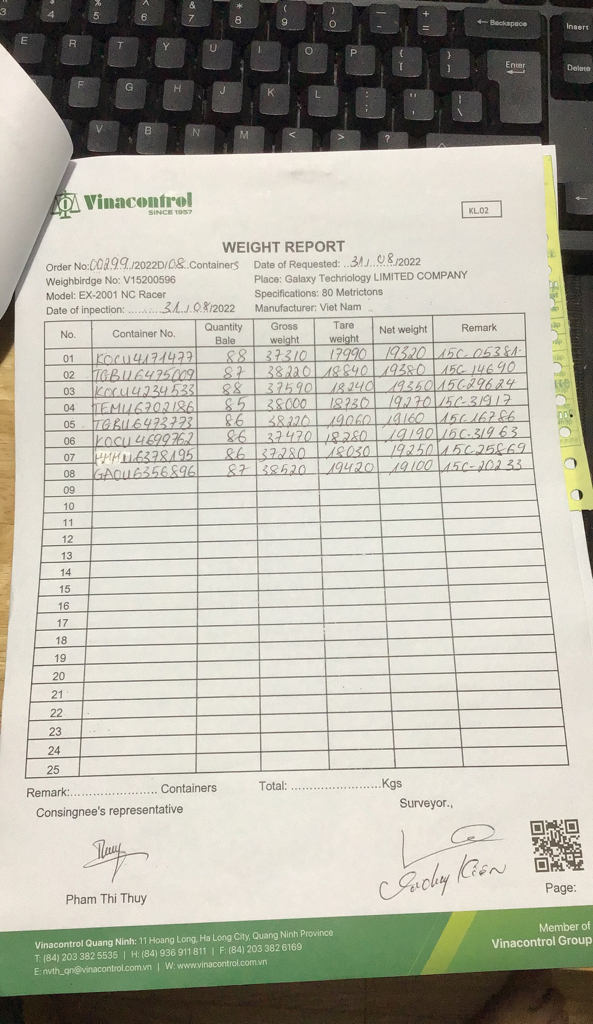 Vinacontrol
SINCE 1957
KL.02
WEIGHT REPORT
Order No:00299/2022D/08 Containers Date of Requested: 31/08/2022
Weighbirdge No: V15200596 Place: Galaxy Technology LIMITED COMPANY
Model: EX-2001 NC Racer Specifications: 80 Metrictons
Date of inpection: 31/08/2022 Manufacturer: Viet Nam
No. Container No. Quantity Bale Gross weight Tare weight Net weight Remark
01 KOCU4171477 88 37310 17990 19320 15C-05381
02 TGBU6475009 87 38220 18840 19380 15C-14690
03 KOCU4234533 88 37590 18240 19350 15C-29624
04 TEMU6702186 85 38000 18730 19270 15C-31917
05 TGBU6473773 86 38220 19060 19160 15C-16786
06 KOCU4699762 86 37470 18280 19190 15C-31963
07 HMMU6378195 86 37280 18030 19250 15C-25869
08 GAOU6356896 87 38520 19420 19100 15C-20233
09
10
11
12
13
14
15
16
17
18
19
20
21
22
23
24
25
Remark:.......................... Containers Total: ...........................Kgs
Consingnee's representative Surveyor.,
Thuy
Pham Thi Thuy
Page:
Vinacontrol Quang Ninh: 11 Hoang Long, Ha Long City, Quang Ninh Province
T: (84) 203 382 5535 | H: (84) 936 911 811 | F: (84) 203 382 6169
E: nvth_qn@vinacontrol.com.vn | W: www.vinacontrol.com.vn
Member of
Vinacontrol Group